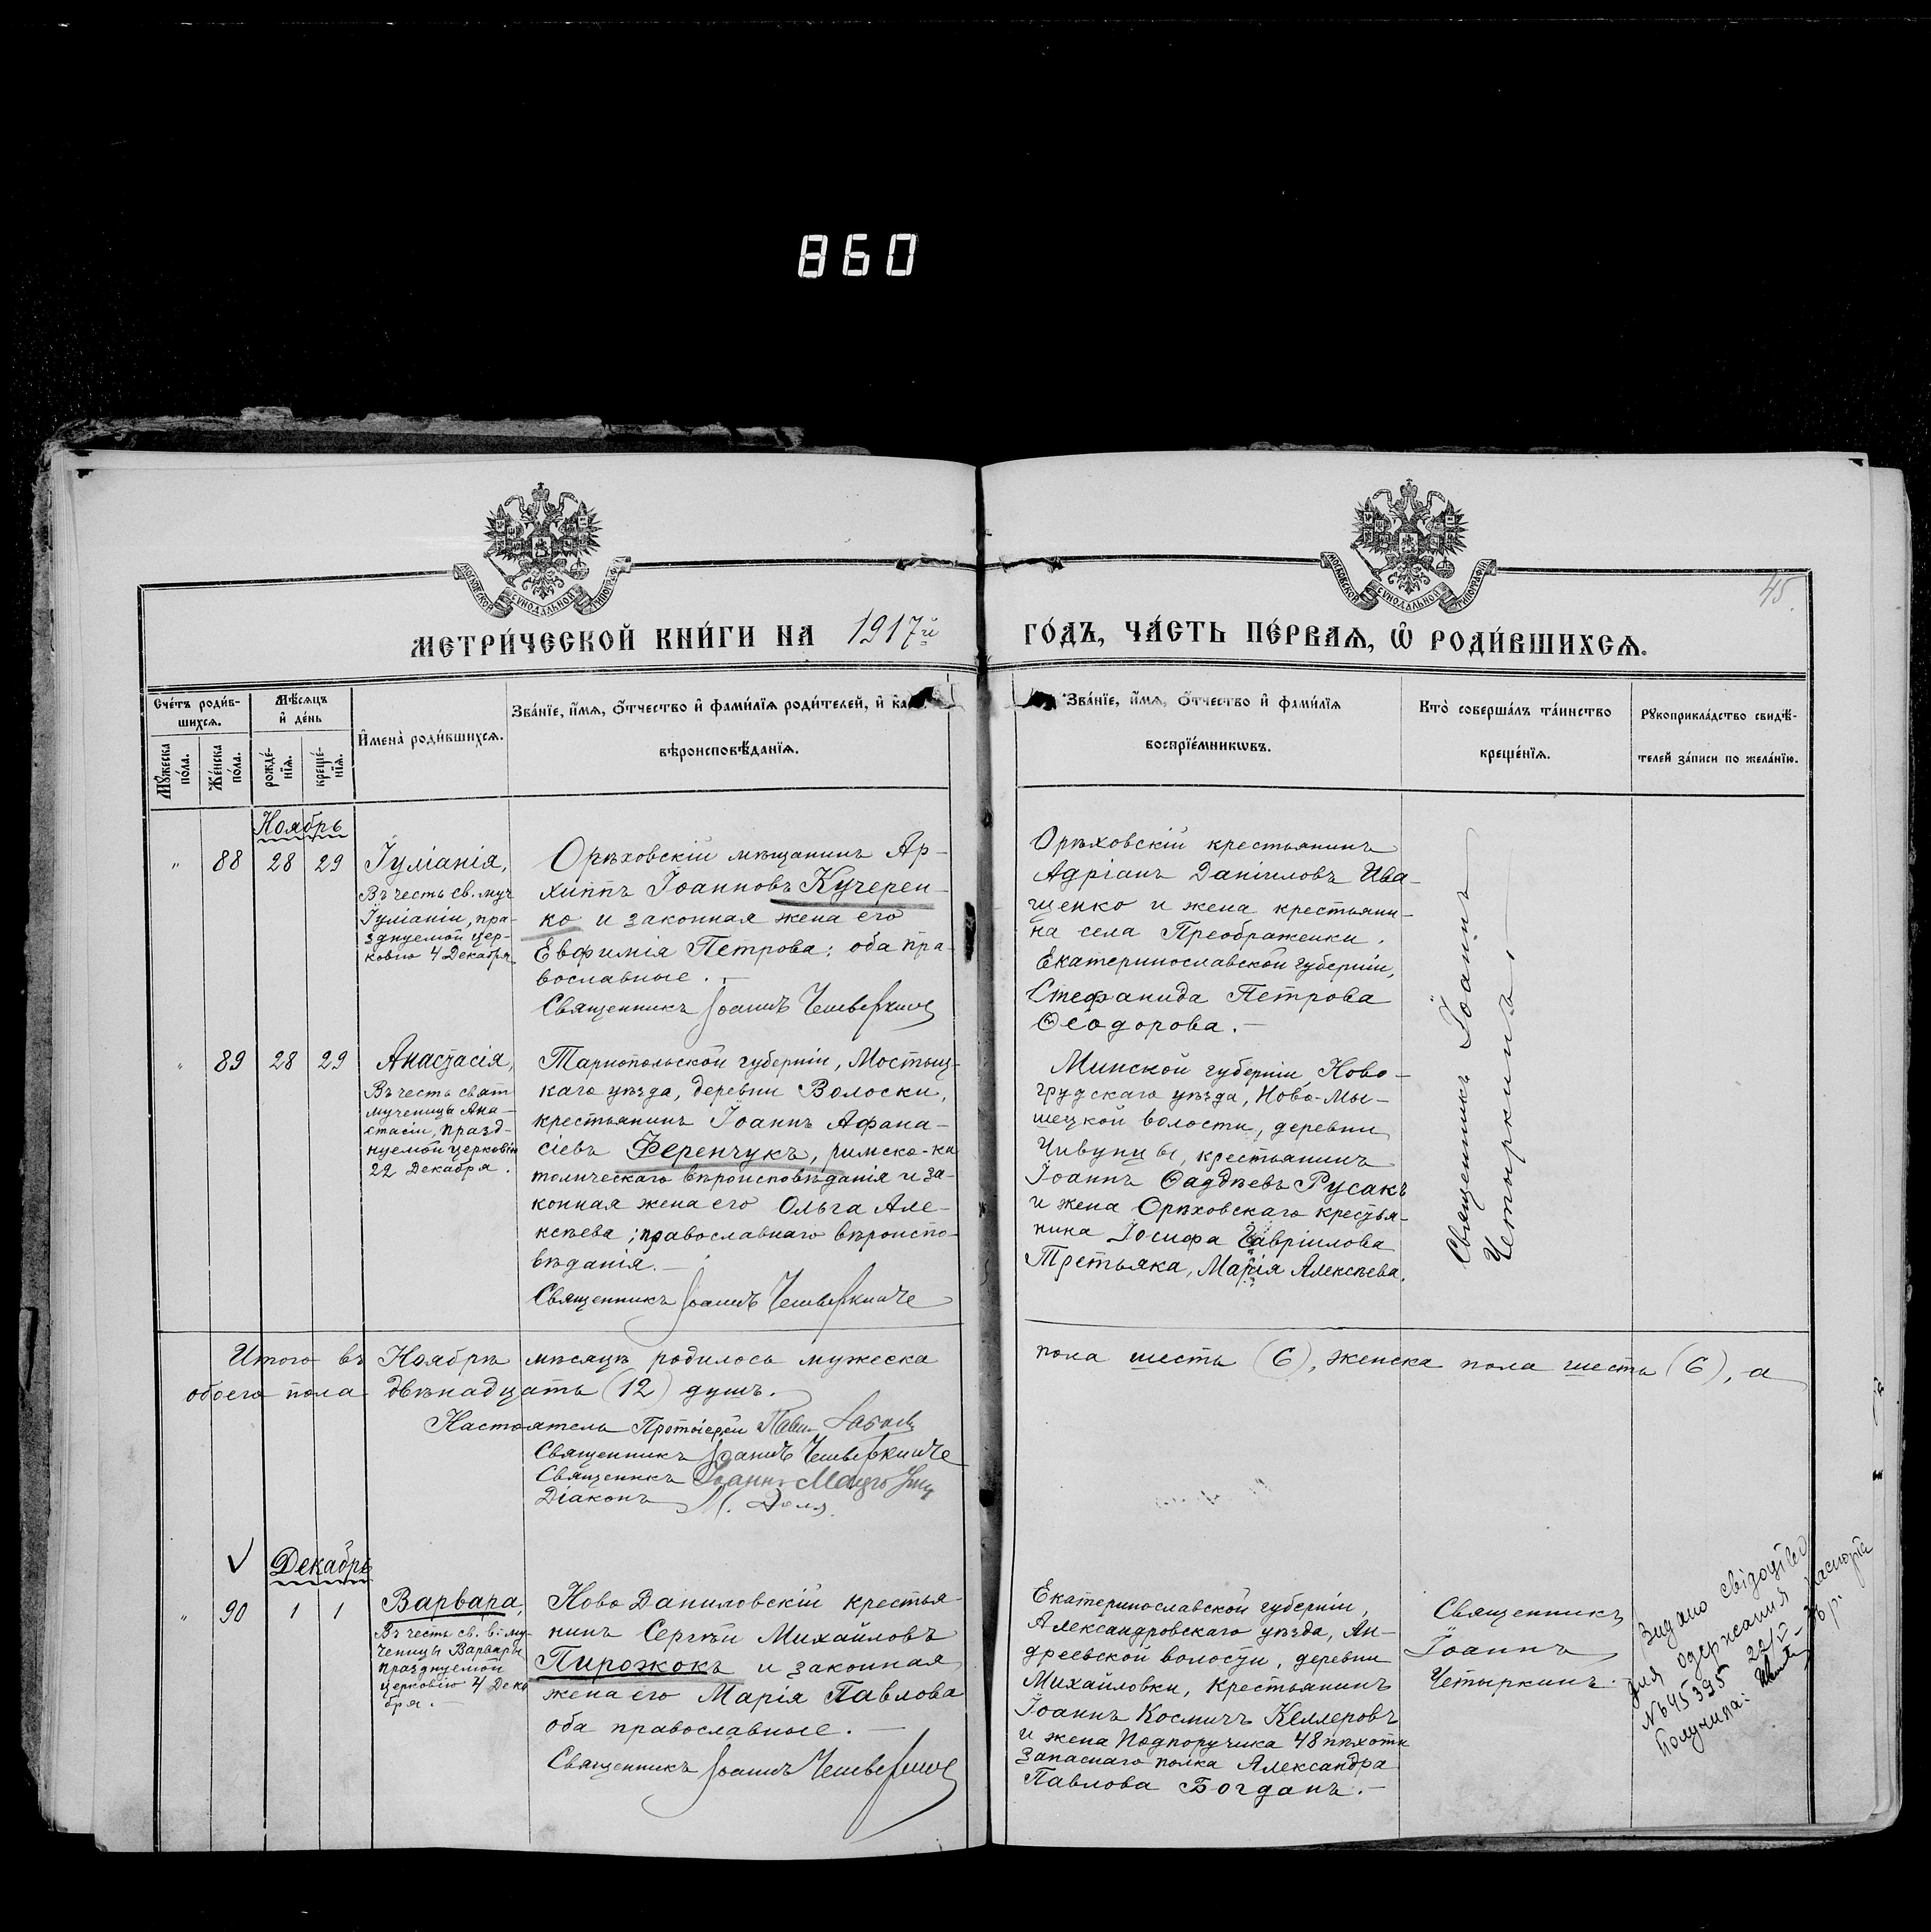 860
МОСКОВСКОЙ СУНОДАЛЬНОЙ ТИПОГРАФІИ
МОСКОВСКОЙ СУНОДАЛЬНОЙ ТИПОГРАФІИ
45.
МЕТРИ́ЧЕСКОЙ КНИ́ГИ НА 1917й
ГО́ДЪ, ЧА́СТЬ ПЕ́РВАѦ, Ѡ҆ РОДИ́ВШИХСѦ.
Сче́тъ роди́в-
шихсѧ.
Мѣ́сѧцъ
и҆ де́нь
Мꙋ́жеска
по́ла.
Же́нска
по́ла.
рожде́-
нїѧ.
креще́-
нїѧ.
И҆мена̀ роди́вшихсѧ.
Зва́нїе, и҆́мѧ, ѻ҆́тчество и҆ фами́лїѧ роди́телей, и҆ ка
вѣроисповѣ́данїѧ.
Зва́нїе, и҆́мѧ, ѻ҆́тчество и҆ фами́лїѧ
воспрїе́мникѡвъ.
Кто̀ соверша́лъ та́инство
креще́нїѧ.
Рꙋкоприкла́дство свидѣ́-
телей за́писи по жела́нїю.
Ноябрь
" 88 28 29
Іуліанія,
Въ честь св. муч
Іуліаніи, пра-
зднуемой цер-
ковію 4 Декабря
Орѣховскій мѣщанинъ Ар-
хиппъ Іоанновъ Кучерен-
ко и законная жена его
Евфимія Петрова; оба пра-
вославные. —
Священникъ Іоаннъ Четыркинъ
Орѣховскій крестьянинъ
Адріанъ Даніиловъ Ива-
щенко и жена крестьяни-
на села Преображенки,
Екатеринославской губерніи,
Стефанида Петрова
Ѳеодорова. —
Священникъ Іоаннъ
Четыркинъ.
" 89 28 29
Анастасія,
Въ честь свят
мученицы Ана-
стасіи, празд-
нуемой церковію
22 Декабря.
Тарнопольской губерніи, Мостыц-
каго уѣзда, деревни Волоски,
крестьянинъ Іоаннъ Афана-
сіевъ Ференчукъ, римско-ка
толическаго вѣроисповѣданія и за-
конная жена его Ольга Але-
ксѣева; православнаго вѣроиспо-
вѣданія. —
Священникъ Іоаннъ Четыркинъ
Минской губерніи, Ново-
грудскаго уѣзда, Ново-Мы-
шецкой волости, деревни
Чивуны, крестьянинъ
Іоаннъ Ѳаддѣевъ Русакъ
и жена Орѣховскаго крестья-
нина Іосифа Гавріилова
Третьяка, Марія Алексѣева.
Итого въ Ноябрѣ мѣсяцѣ родилось мужеска
пола шесть (6), женска пола шесть (6), а
обоего пола двѣнадцать (12) душъ.
Настоятель Протоіерей
Священникъ Іоаннъ Четыркинъ
Священикъ Іоаннъ
Діаконъ
Декабрь
" 90 1 1
Варвара,
Въ честь св. в.-му-
ченицы Варвары
празднуемой
церковію 4 Дека
бря. —
Ново Даниловскій крестья-
нинъ Сергѣй Михайловъ
Пирожокъ и законная
жена его Марія Павлова
оба православные. —
Священникъ Іоаннъ Четыркинъ
Екатеринославской губерніи,
Александровскаго уѣзда, Ан-
дреевской волости, деревни
Михайловки, крестьянинъ
Іоаннъ Космичъ Келлеровъ
и жена Подпоручика 48 пѣхотн
запаснаго полка Александра
Павлова Богданъ. —
Священникъ
Іоаннъ
Четыркинъ.
Видано свідоцтво
для одержання паспорта
№ 45395 22/V-36 р.
Получила: